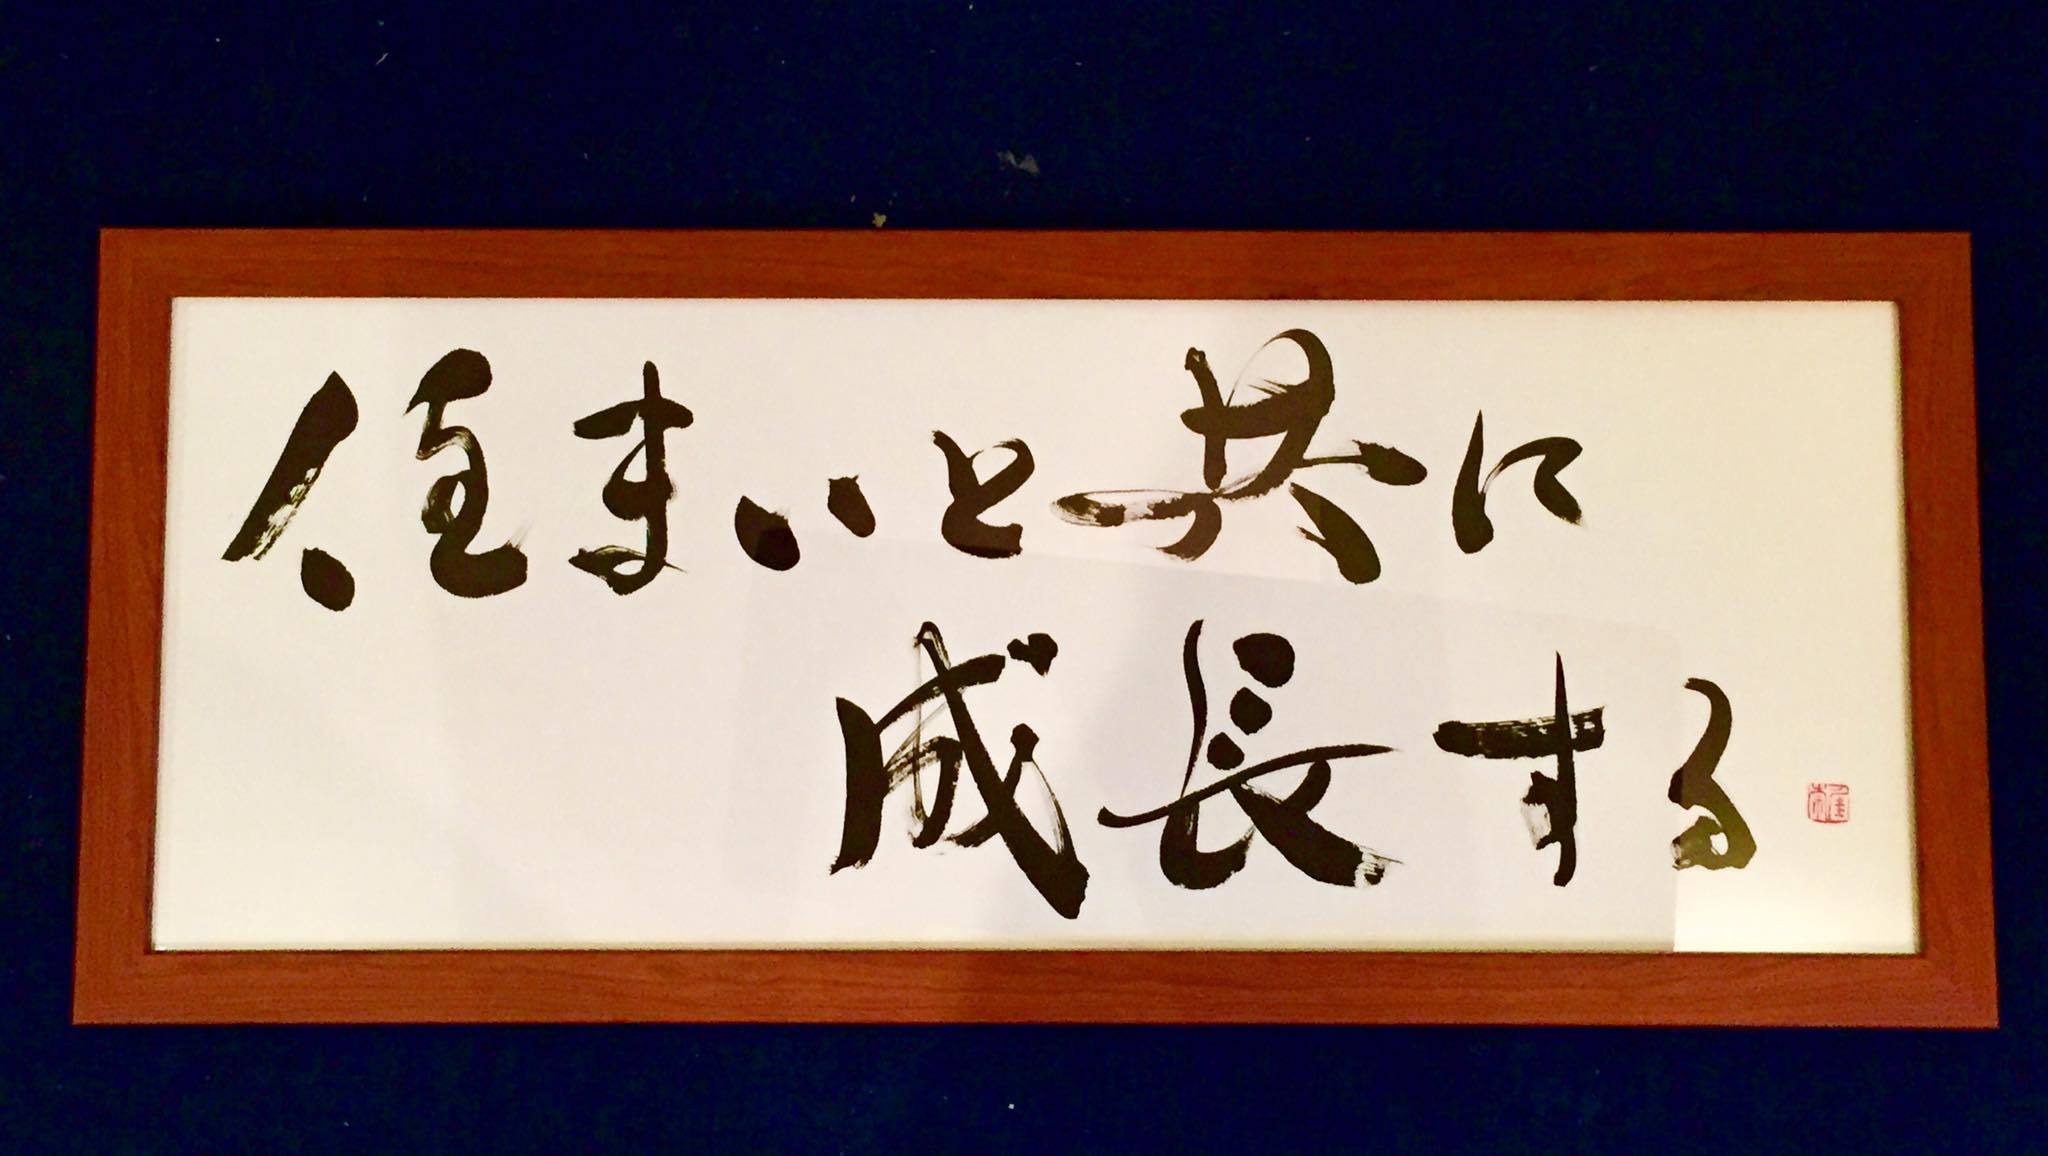 住まいと共に
成長する